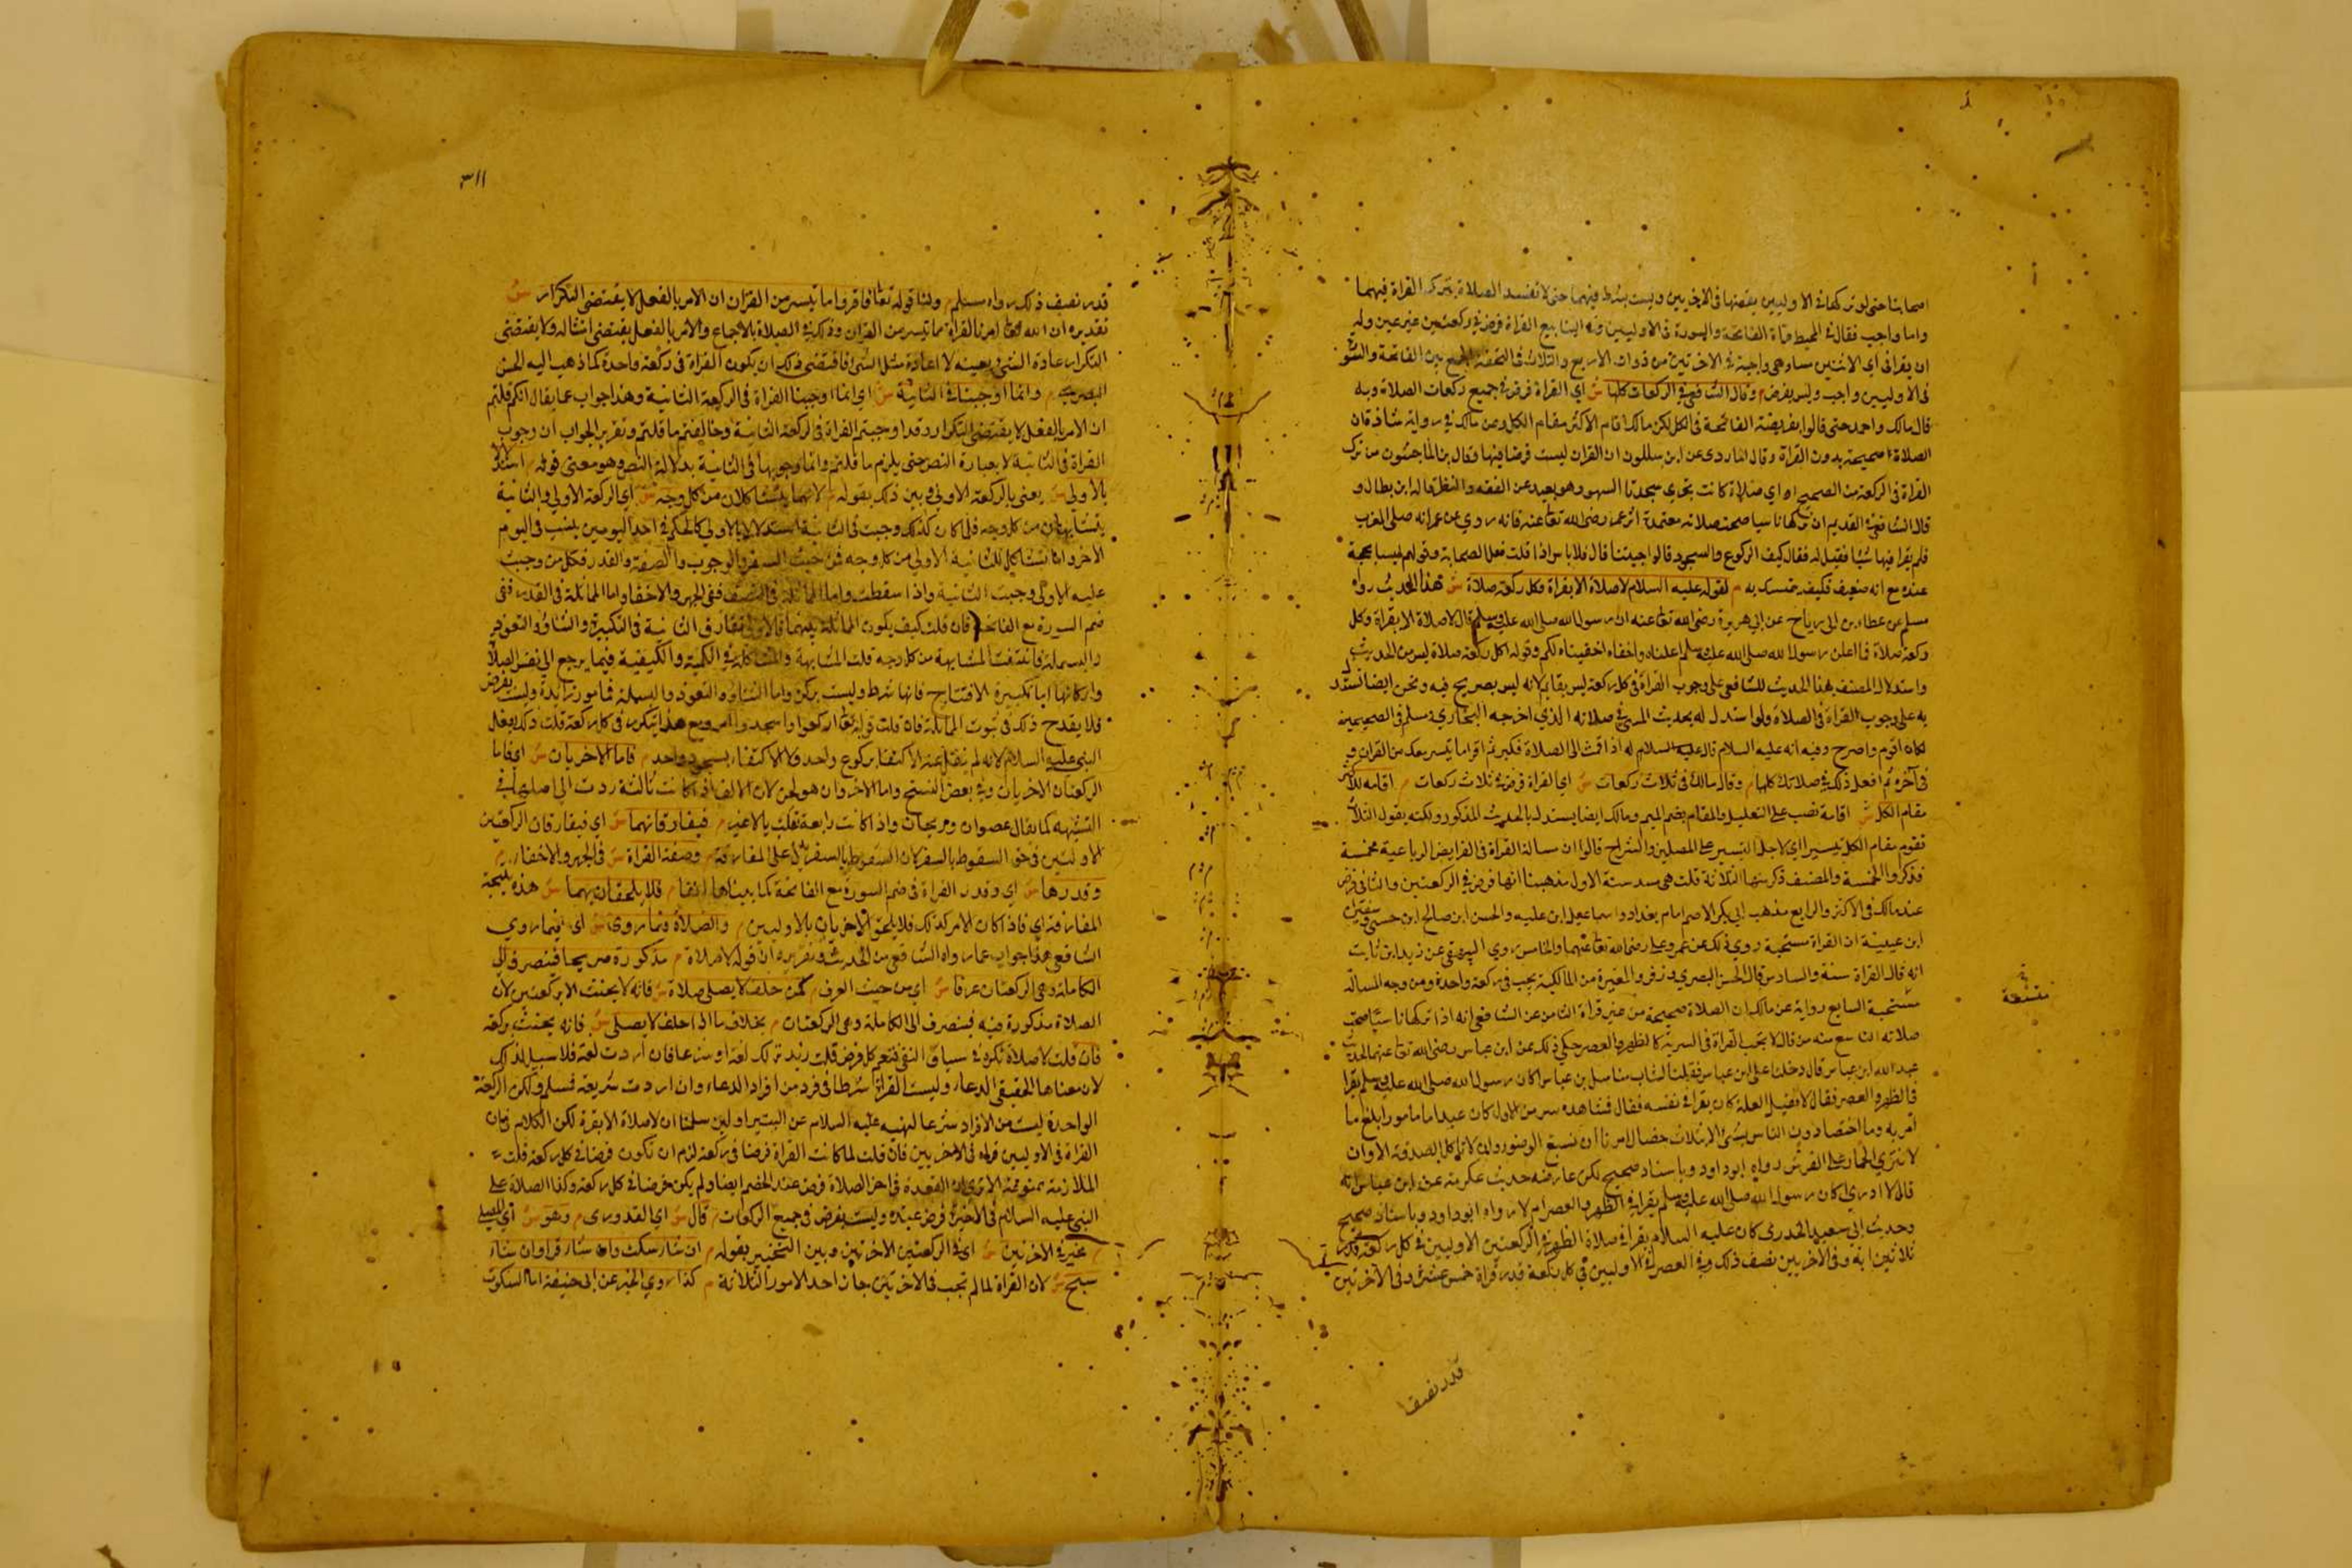 اصحابنا حتى لو تركها في الاوليين يقضيها في الاخريين وليست بشرط فيهما حتى لا تفسد الصلاة بترك القراة فيهما
واما واجب فقال في المحيط قراة الفاتحة والسورة في الاوليين وفي الينابيع القراة فرض في ركعتين غير عين وله
ان يقرا في اي الاثنتين شاء وهي واجبة في الاخرتين من ذوات الاربع والثلاث في التحفة الجمع بين الفاتحة والسورة
في الاوليين واجب وليس بفرض م وقال الشافعي في الركعات كلها ش اي القراة فرض في جميع ركعات الصلاة وبه
قال مالك واحمد حتى قالوا بفريضة الفاتحة في الكل لكن مالكا اقام الاكثر مقام الكل وعن مالك في رواية شاذة ان
الصلاة صحيحة بدون القراة وقال الماوردي عن ابن سللون ان القران ليست فرضا فيها وقال بن الماجشون من ترك
القراة في الركعة من الصبح او اي صلاة كانت تجزي سجدتا السهو وهو بعيد عن الفقه والنظر قاله ابن بطال و
قال الشافعي في القديم ان تركها ناسيا صحت صلاته معتمدة اثر عمر رضي الله تعا عنه فانه روي عن عمر انه صلى المغرب
فلم يقرا فيها شيا فقيل له فقال كيف الركوع والسجود قالوا حسنا قال فلا باس اذا قلت فعل الصحابة وقولهم ليسا بحجة
عنده مع انه ضعيف فكيف يتمسك به م لقوله عليه السلام لا صلاة الا بقراة وكل ركعة صلاة ش هذا الحديث رواه
مسلم عن عطاء بن ابي رباح عن ابي هريرة رضي الله تعا عنه ان رسول الله صلى الله عليه وسلم قال لا صلاة الا بقراة وكل
ركعة صلاة فما اعلن رسول الله صلى الله عليه وسلم اعلناه واخفاه اخفيناه لكم وقوله اكل ركعة صلاة ليس من الحديث
واستدلال المصنف بهذا الحديث للشافعي على وجوب القراة في كل ركعة ليس بقايم لانه ليس بصريح فيه ونحن ايضا نستدل
به على وجوب القراة في الصلاة ولو استدل له بحديث المسيء في صلاته الذي اخرجه البخاري ومسلم في الصحيحين
لكان اقوم واصرح وفيه انه عليه السلام قال عليه السلام له اذا قمت الى الصلاة فكبر ثم اقرا ما تيسر معك من القران و
في آخره ثم افعل ذلك في صلاتك كلها م وقال مالك في ثلاث ركعات ش اي القراة فرض في ثلاث ركعات م اقامة للاكثر
مقام الكل ش اقامة نصب على التعليل والمقام بضم الميم ومالك ايضا يستدل بالحديث المذكور ولكنه يقول الثلاث
تقوم مقام الكل تيسيرا اي لاجل التيسير على المصلين والشراح قالوا ان مسالة القراة في الفرايض الرباعية مخمسة
فذكروا الخمسة والمصنف ذكر منها الثلاثة قلت هي مسدسة الاول مذهبنا انها فرض في الركعتين والثاني فرض
عند مالك في الاكثر والرابع مذهب ابي بكر الاصم امام بغداد واسماعيل ابن علية والحسن ابن صالح ابن حسن وسفين
ابن عيينة ان القراة مستحبة روي ذلك عن عمر وعلي رضي الله تعا عنهما والخامس روي البيهقي عن زيد ابن ثابت
انه قال القراة سنة والسادس قال الحسن البصري وزفر والمغيرة من المالكية يجب في ركعة واحدة ومن وجه المسالة
مستحبة السابع رواية عن مالك ان الصلاة صحيحة من غير قراة الثامن عن الشافعي انه اذا تركها ناسيا صحت
صلاته التاسع منه من قال لا تجب القراة في السرية كالظهر والعصر حكي ذلك عن ابن عباس رضي الله تعا عنهما لحديث
عبد الله ابن عباس قال دخلنا على ابن عباس فقلنا لشاب منا سل بن عباس اكان رسول الله صلى الله عليه وسلم يقرا
في الظهر والعصر فقال لا فقيل لعله كان يقرا في نفسه فقال فشا هذه شر من الاول كان عبدا مامورا بلغ ما
امر به وما اختصنا دون الناس بشيء الا بثلاث خصال امرنا ان نسبغ الوضوء وان لا ناكل الصدقة الا وان
لا ننزي الحمار على الفرس رواه ابو داود وباسناد صحيح لكن عارضه حديث عكرمة عن ابن عباس انه
قال لا ادري اكان رسول الله صلى الله عليه وسلم يقرا في الظهر والعصر ام لا رواه ابو داود وباسناد صحيح
وحديث ابي سعيد الخدري كان عليه السلام يقرا في صلاة الظهر في الركعتين الاوليين في كل ركعة قدر
ثلاثين اية وفي الاخريين نصف ذلك وفي العصر في الاوليين في كل ركعة قدر قراة خمس عشرة وفي الاخرتين
قدر نصف
٣١١
قدر نصف ذلك رواه مسلم م ولنا قوله تعا فاقروا ما تيسر من القران ان الامر بالفعل لا يقتضي التكرار ش
تقديره ان الله تعا امر بالقراة بما تيسر من القران وذلك في الصلاة بالاجماع والامر بالفعل يقتضي امتثاله ولا يقتضي
التكرار عادة الشيء بعينه لا اعادة مثل الشيء فاقتضى ذلك ان يكون القراة في ركعة واحدة كما ذهب اليه الحسن
البصري م وانما اوجبنا في الثانية ش اي انما اوجبنا القراة في الركعة الثانية وهذا جواب عما يقال انكم قلتم
ان الامر بالفعل لا يقتضي التكرار وقد اوجبتم القراة في الركعة الثانية وخالفتم ما قلتم وتقرير الجواب ان وجوب
القراة في الثانية لا بعبارة النص حتى يلزم ما قلتم وانما وجوبها في الثانية بدلالة النص وهو معنى قوله م استدلالا
بالاولى ش يعني بالركعة الاولى وبين ذلك بقوله م لانهما يتشاكلان من كل وجه ش اي الركعة الاولى والثانية
يتشابهان من كل وجه فلما كان كذلك وجبت في الثانية استدلالا بالاولى كالحكم في احد اليومين يثبت في اليوم
الاخر وانما تشاكل الثانية الاولى من كل وجه من حيث السفر والوجوب والصفة والقدر فكل من وجبت
عليه الاولى وجبت الثانية واذا سقطت واما المماثلة في الصفة ففي الجهر والاخفا واما المماثلة في القدر ففي
ضم السورة مع الفاتحة فان قلت كيف يكون المماثلة بينهما فالاولى تفارق الثانية في التكبيرة والثناء والتعوذ
والبسملة فانتفت المشابهة من كل وجه قلت المشابهة والمشاكلة في الكمية والكيفية فيما يرجع الى نفس الصلاة
واركانها اما تكبيرة الافتتاح فانها شرط وليست بركن واما الثناء والتعوذ والبسملة فامور زايدة وليست بفرض
فلا يقدح ذلك في ثبوت المماثلة فان قلت قوله تعا اركعوا واسجدوا امر ومع هذا يتكرر في كل ركعة قلت ذلك بفعل
النبي عليه السلام لانه لم ينقل عنه الاكتفاء بركوع واحد ولا الاكتفاء بسجود واحد م فاما الاخريان ش اي فاما
الركعتان الاخريان وفي بعض النسخ واما الاخروان هو لحن لان الالف اذا كانت ثالثة ردت الى اصلها في
التثنية كما يقال عصوان ورحيان واذا كانت رابعة تقلب يا لا غير م فيفارقانهما ش اي فيفارقان الركعتين
الاوليين في حق السقوط بالسفر كان السقوط بالسفر دليل على المفارقة م وصفة القراة ش في الجهر والاخفاء م
وقدرها ش اي وقدر القراة في ضم السورة مع الفاتحة كما بيناها انفا م فلا يلحقان بهما ش هذه نتيجة
المفارقة اي فاذا كان الامر كذلك فلا يلحق الاخريان بالاوليين م والصلاة فيما روى ش اي فيما روي
الشافعي هذا جواب عما رواه الشافعي من الحديث وتقريره ان قوله لا صلاة م مذكورة صريحا فتنصرف الى
الكاملة وهي الركعتان عرفا ش اي من حيث العرف م كمن حلف لا يصلي صلاة ش فانه لا يحنث الا بركعتين لان
الصلاة مذكورة فيه فينصرف الى الكاملة وهي الركعتان م بخلاف ما اذا حلف لا يصلي ش فانه يحنث بركعة
فان قلت لا صلاة نكرة في سياق النفي فتعم كل فرض قلت تريد ذلك لغة او شرعا فان اردت لغة فلا سبيل لذلك
لان معناها الحقيقي الدعاء وليست القراة شرطا في فرد من افراد الدعاء وان اردت شريعة فمسلم ولكن الركعة
الواحدة ليست من الافراد شرعا لنهيه عليه السلام عن البتيراء ولئن سلمنا ان لا صلاة الا بقرة لكن الكلام في ان
القراة في الاوليين قراة في الاخريين فان قلت لما كانت القراة فرضا في ركعة لزم ان تكون فرضا في كل ركعة قلت
الملازمة ممنوعة الا ترى ان القعدة في اخر الصلاة فرض عند الخصم ايضا ولم يكن فرضا في كل ركعة وكذا الصلاة على
النبي عليه السلام في الاخيرة فرض عنده وليست بفرض في جميع الركعات م قال ش اي القدوري م وهو ش اي المصلي
م مخير في الاخرتين ش اي في الركعتين الاخرتين وبين التخيير بقوله م ان شاء سكت وان شاء قرا وان شاء
سبح ش لان القراة لما لم تجب في الاخرتين جاز احد الامور الثلاثة م كذا روي الخبر عن ابي حنيفة اما السكوت